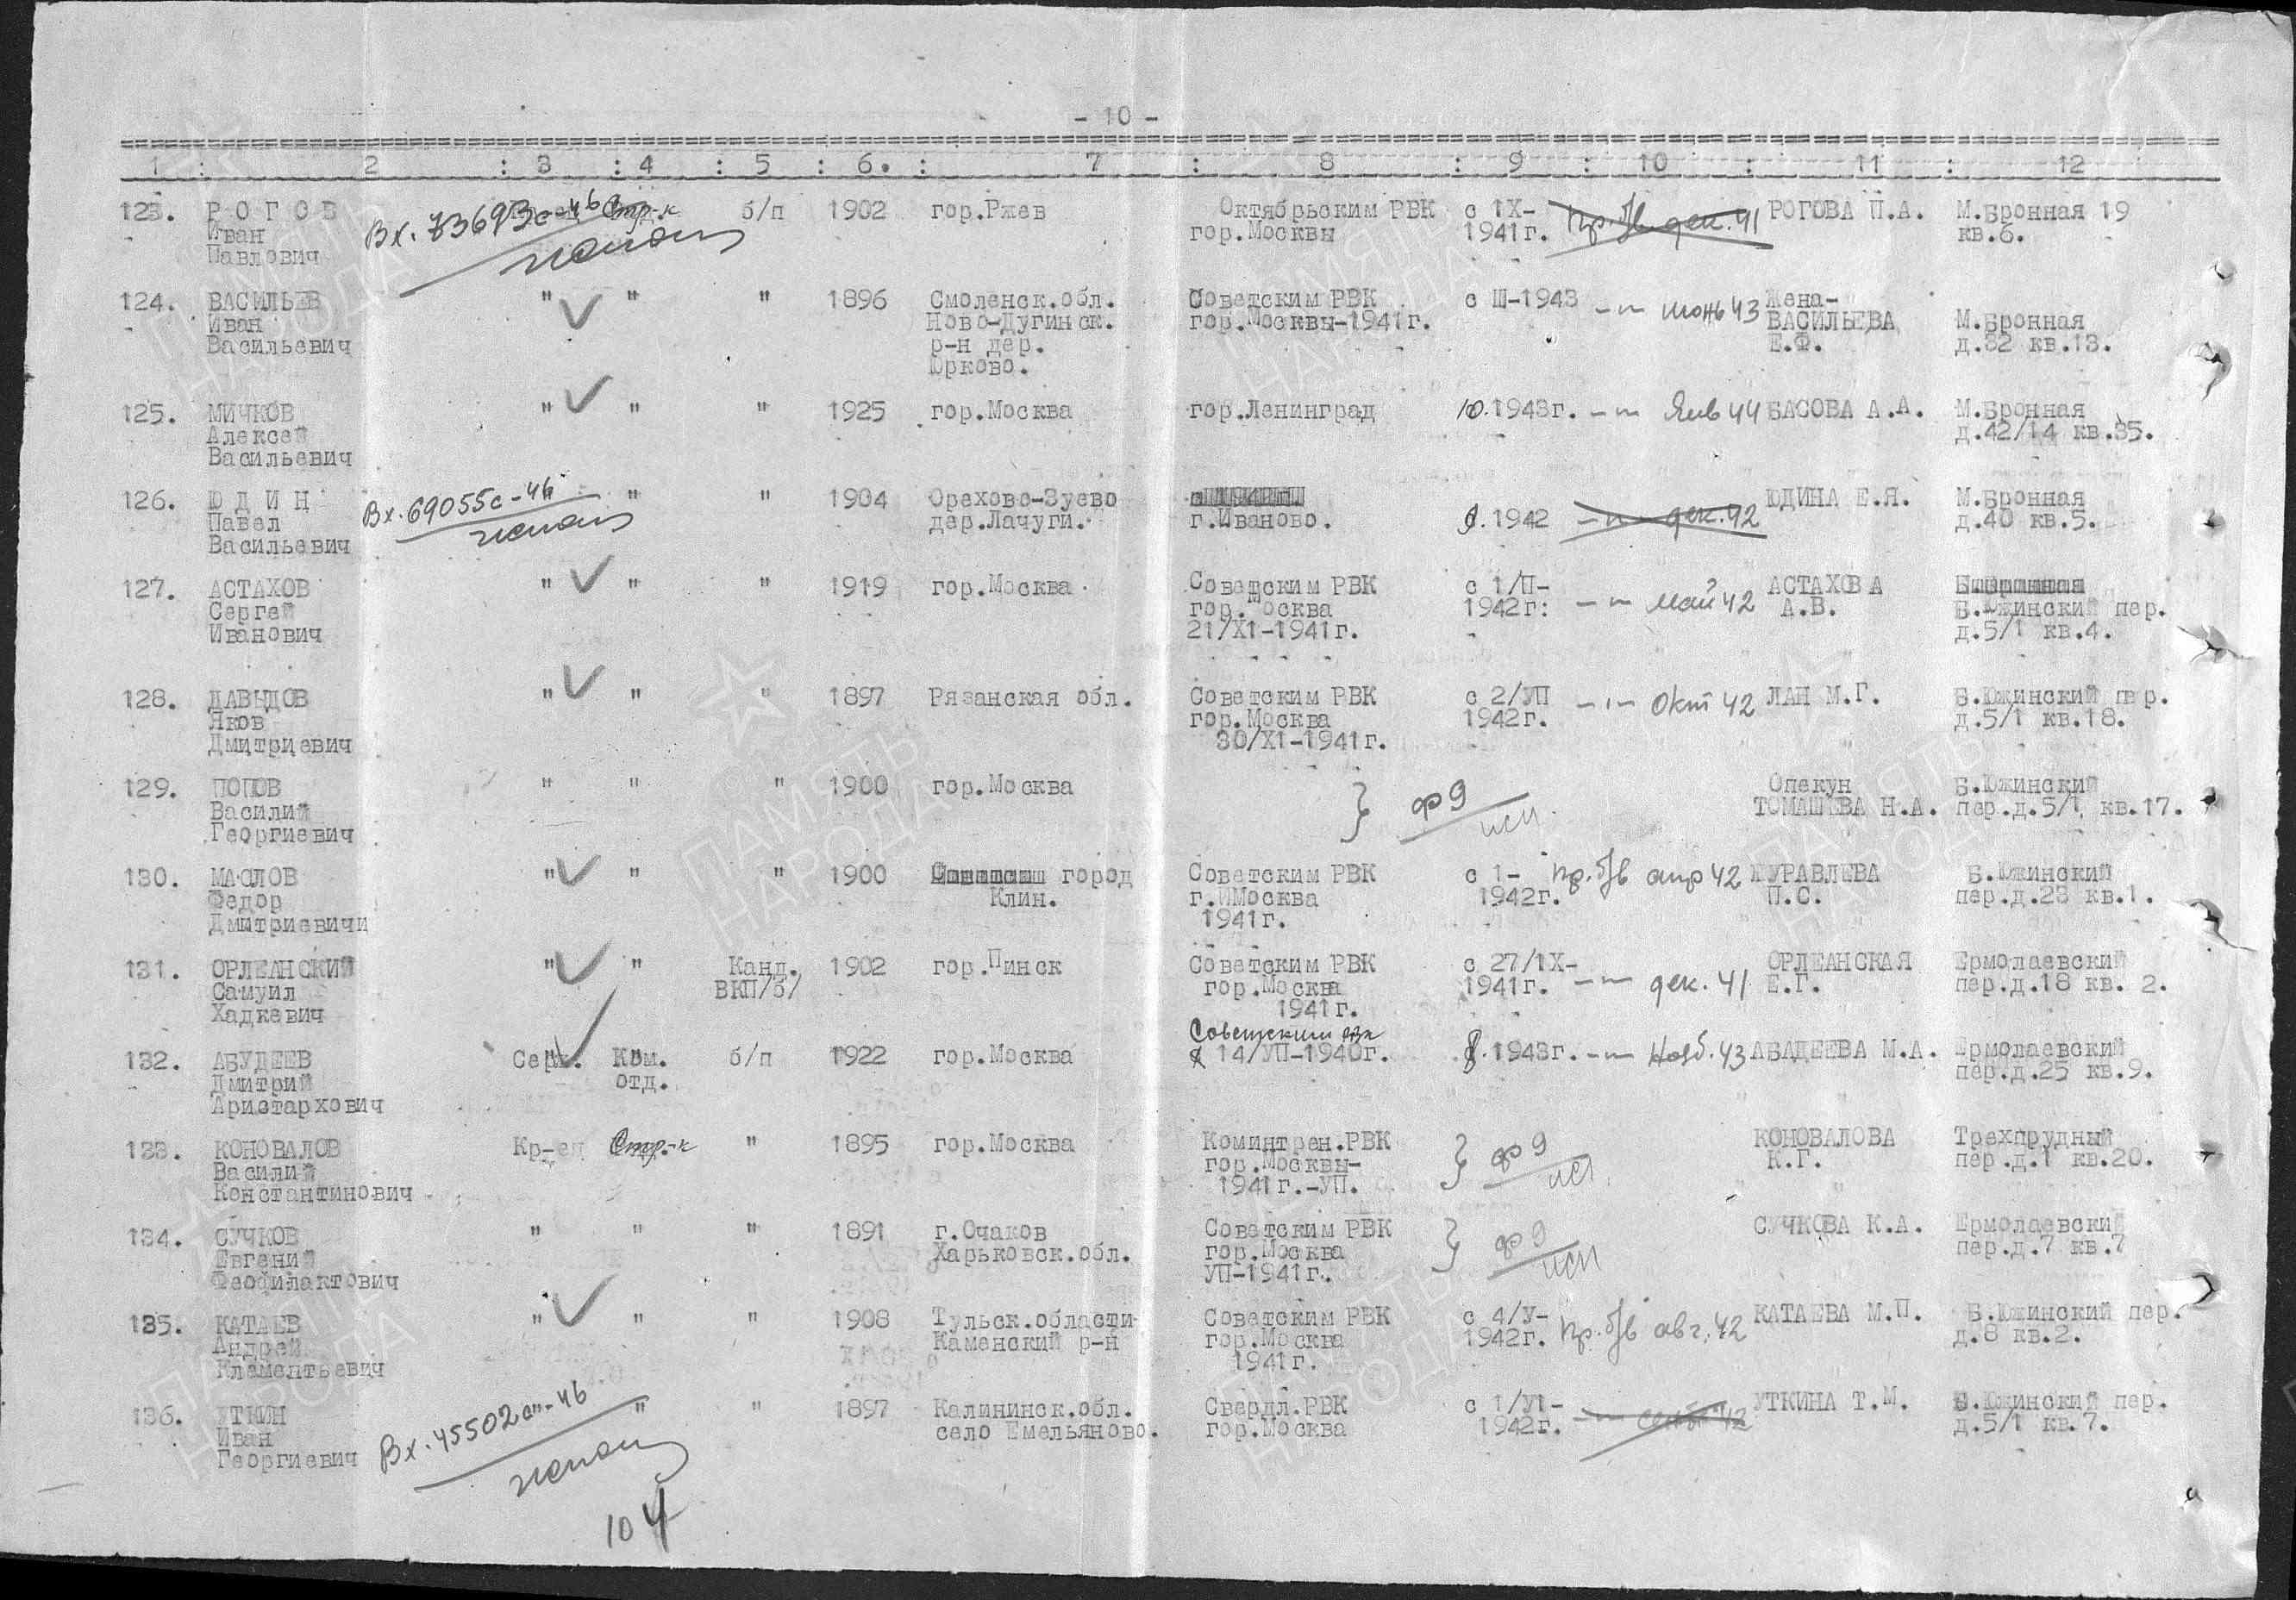 - 10 -
1 : 2 : 3 : 4 : 5 : 6. : 7 : 8 : 9 : 10 : 11 : 12
123. Р О Г О В Вх. 73693с-46 Стр-к б/п 1902 гор.Ржев Октябрьским РВК с 1Х- пр. б/в дек. 41 РОГОВА П.А. М.Бронная 19
Иван гор.Москвы 1941г. кв.6.
Павлович
124. ВАСИЛЬЕВ " " " 1896 Смоленск.обл. Советским РВК с Ш-1943 -"- июнь 43 Жена-
Иван Ново-Дугинск. гор.Москвы-1941г. ВАСИЛЬЕВА М.Бронная
Васильевич р-н дер. Е.Ф. д.32 кв.13.
Юрково.
125. МИЧКОВ " " " 1925 гор.Москва гор.Ленинград 10.1943г. -"- Янв 44 БАСОВА А.А. М.Бронная
Алексей д.42/14 кв.35.
Васильевич
126. Ю Д И Н Вх. 69055с-46 " " 1904 Орехово-Зуево ЮДИНА Е.Я. М.Бронная
Павел дер.Лачуги. г.Иваново. 1942 -"- дек. 42 д.40 кв.5.
Васильевич
127. АСТАХОВ " " " 1919 гор.Москва Советским РВК с 1/П- -"- май 42 АСТАХОВА
Сергей гор.Москва 1942г: А.В. Б.Южинский пер.
Иванович 21/Х1-1941г. д.5/1 кв.4.
128. ДАВЫДОВ " " " 1897 Рязанская обл. Советским РВК с 2/УП -"- Окт 42 ЛАН М.Г. Б.Южинский пер.
Яков гор.Москва 1942г. д.5/1 кв.18.
Дмитриевич 30/Х1-1941г.
129. ПОПОВ " " " 1900 гор.Москва ф 9 Опекун Б.Южинский
Василий исп. ТОМАШЕВА Н.А. пер.д.5/1 кв.17.
Георгиевич
130. МАСЛОВ " " " 1900 город Советским РВК с 1- пр. б/в апр 42 ЖУРАВЛЕВА Б.Южинский
Федор Клин. г.ИМосква 1942г. П.С. пер.д.23 кв.1.
Дмитриевичи 1941г.
131. ОРЛЕАНСКИЙ " " Канд. 1902 гор.Пинск Советским РВК с 27/1Х- ОРЛЕАНСКАЯ Ермолаевский
Самуил ВКП/б/ гор.Москва 1941г. -"- дек. 41 Е.Г. пер.д.18 кв. 2.
Хадкевич 1941г.
Советским рвк
132. АБУДЕЕВ Серж. Ком. б/п 1922 гор.Москва 14/УП-1940г. 8.1943г. -"- Нояб. 43 АБАДЕЕВА М.А. Ермолаевский
Дмитрий отд. пер.д.25 кв.9.
Аристархович
133. КОНОВАЛОВ Кр-ец Стр-к " 1895 гор.Москва Коминтрен.РВК ф 9 КОНОВАЛОВА Трехпрудный
Василий гор.Москвы- исп. К.Г. пер.д.1 кв.20.
Константинович 1941г.-УП.
134. СУЧКОВ " " " 1891 г.Очаков Советским РВК ф 9 СУЧКОВА К.А. Ермолаевский
Евгений Харьковск.обл. гор.Москва исп пер.д.7 кв.7
Феофилактович УП-1941г.
135. КАТАЕВ " " " 1908 Тульск.области Советским РВК с 4/У- КАТАЕВА М.П. Б.Южинский пер.
Андрей Каменский р-н гор.Москва 1942г. пр. б/в авг. 42 д.8 кв.2.
Клементьевич 1941г.
136. УТКИН Вх. 45502с-46 " " 1897 Калининск.обл. Свердл.РВК с 1/У1- УТКИНА Т.М. Б.Южинский пер.
Иван село Емельяново. гор.Москва 1942г. д.5/1 кв.7.
Георгиевич
104
ПАМЯТЬ НАРОДА